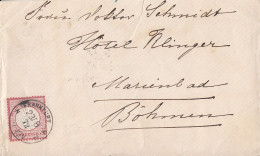 Frau Doktor Schmidt
Hôtel Klinger
Marienbad
Böhmen